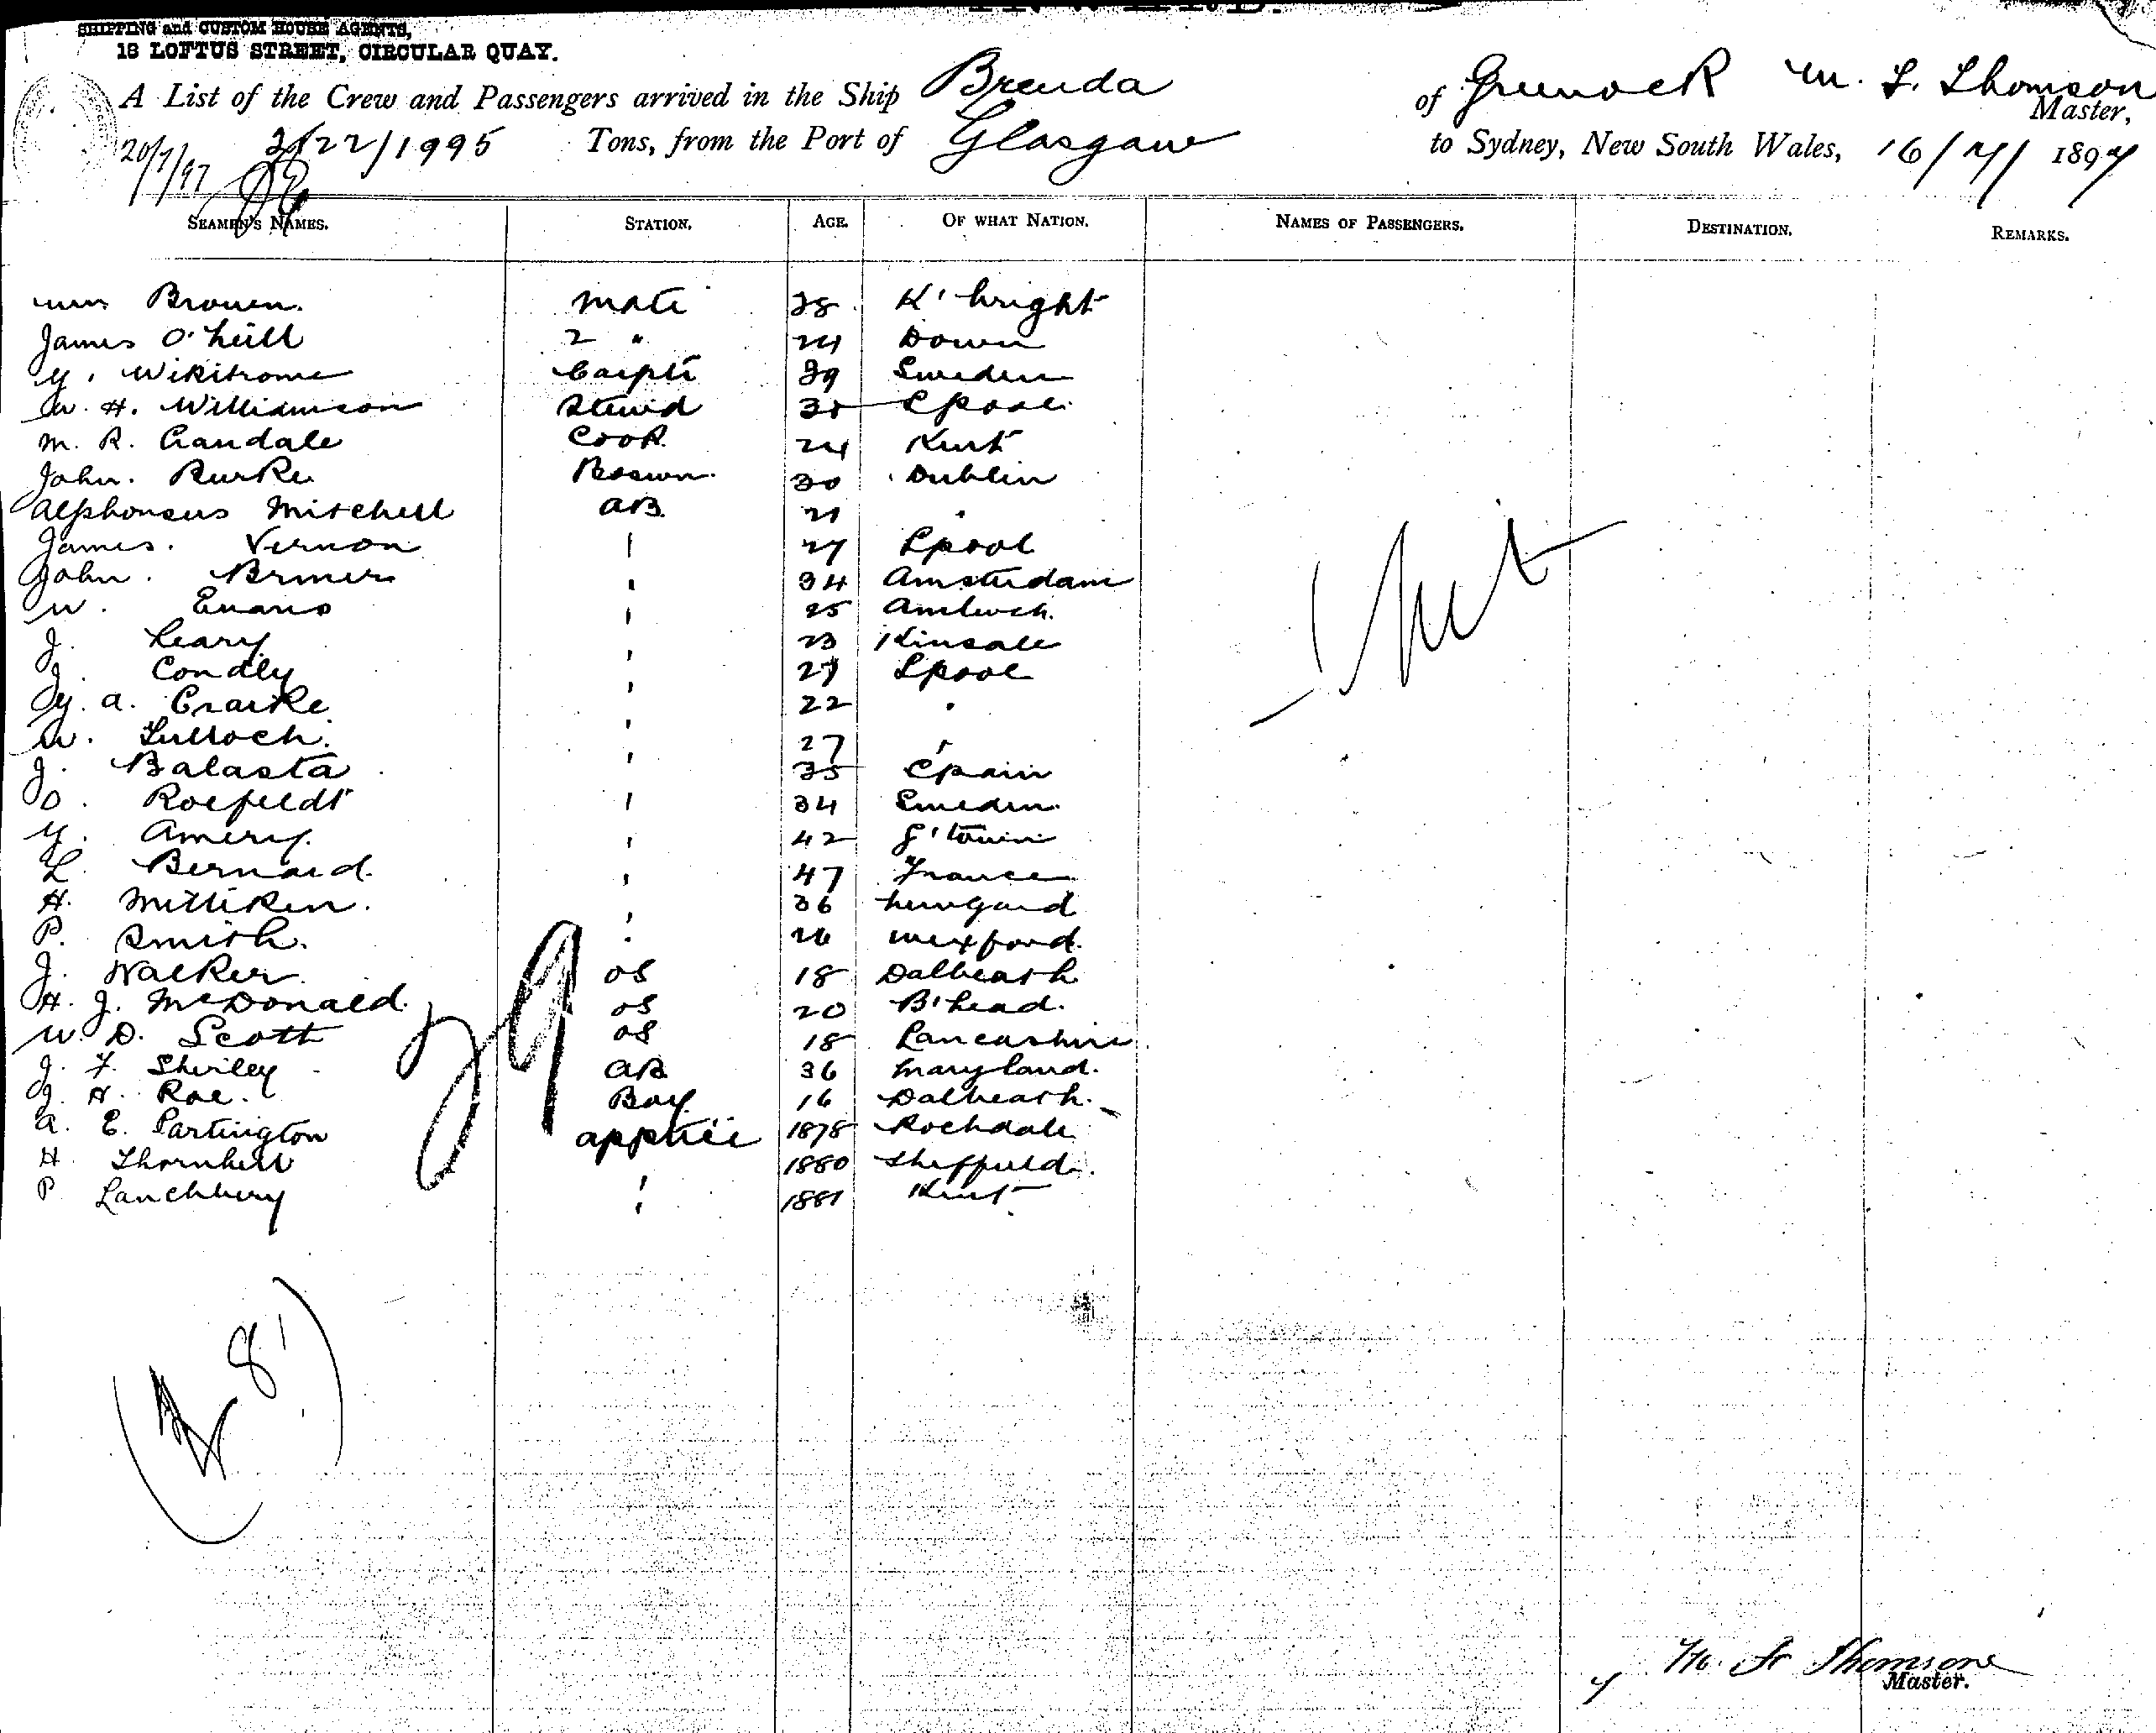 SHIPPING and CUSTOM HOUSE AGENTS,
18 LOFTUS STREET, CIRCULAR QUAY.
A List of the Crew and Passengers arrived in the Ship Brenda of Greenock M. T. Thomson Master,
20/7/97 2122/1995 Tons, from the Port of Glasgow to Sydney, New South Wales, 16/7/1897
SEAMEN'S NAMES. STATION. AGE. OF WHAT NATION. NAMES OF PASSENGERS. DESTINATION. REMARKS.
Wm Brown. Mate 38 K'bright
James O'Neill 2 " 24 Down
Carptr 39 Sweden
W. H. Williamson Stewd 35 Lpool
M. R. Crandale Cook 24 Kent
John. Burke Boswn 30 Dublin
Alphonsus Mitchell AB 21 "
James. Vernon 27 Lpool
John. 34 Amsterdam
W. Evans 25 Amlwch.
J. Leary 23 Kinsale
J. Condly 27 Lpool
G. A. Crarke 22 "
W. Tulloch. 27 "
J. Balasta 35 Spain
O. Roefeldt 34 Sweden.
G. Amery. 42 G'town
L. Bernard. 47 France
H. Milliken. 36
P. Smith. 26 Wexford.
J. Walker OS 18 Dalbeath
H. J. McDonald. OS 20 B'head.
W. D. Scott OS 18 Lancashire
J. F. Shirley AB 36 Maryland.
J. H. Rae. Boy 16 Dalbeath.
A. E. Partington apptice 1878 Rochdale
H. Thornhill 1880 Sheffield.
P. Lanchbery 1881 Kent
29
Nil
8
M. T. Thomson
Master.